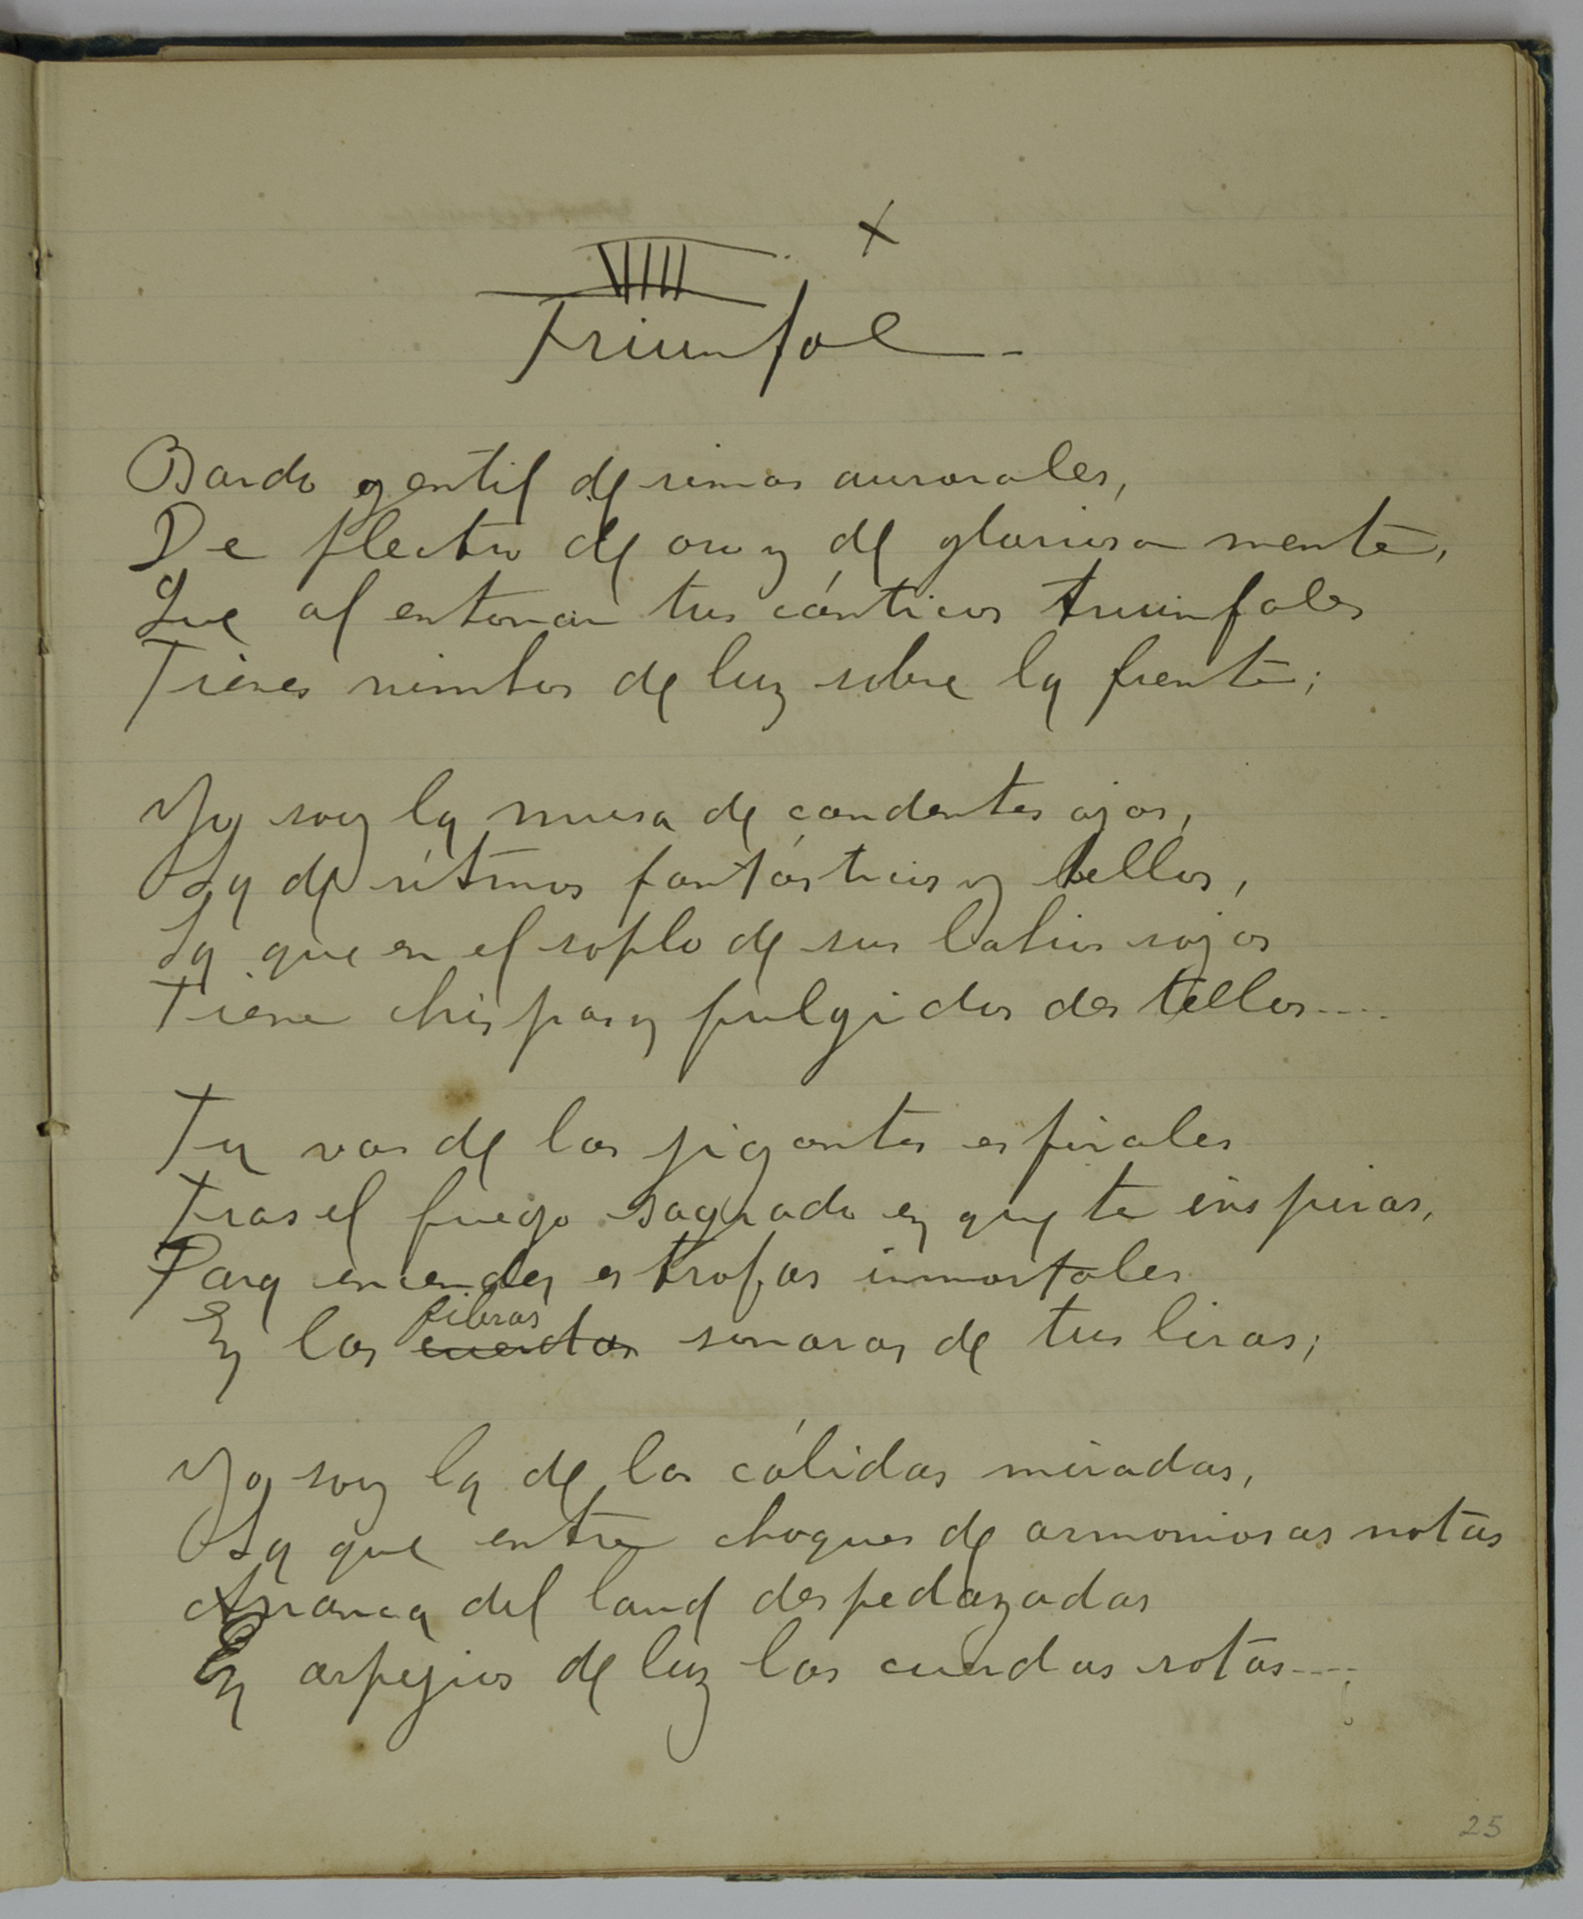 VIIII
X
Triunfal
Bardo gentil de rimas aurorales,
De plectro de oro y de gloriosa mente,
Que al entonar tus cánticos triunfales
Tienes nimbos de luz sobre la frente;
Yo soy la musa de candentes ojos,
La de ritmos fantásticos y bellos,
La que en el soplo de sus labios rojos
Tiene chispas y fulgidos destellos....
Tu vas de las gigantes espirales
Tras el fuego sagrado en que te inspiras,
Para encender estrofas inmortales
fibras
En las cuerdas sonoras de tus liras;
Yo soy la de las cálidas miradas,
La que entre choques de armoniosas notas
Arranca del laud despedazadas
En arpegios de luz las cuerdas rotas....
25